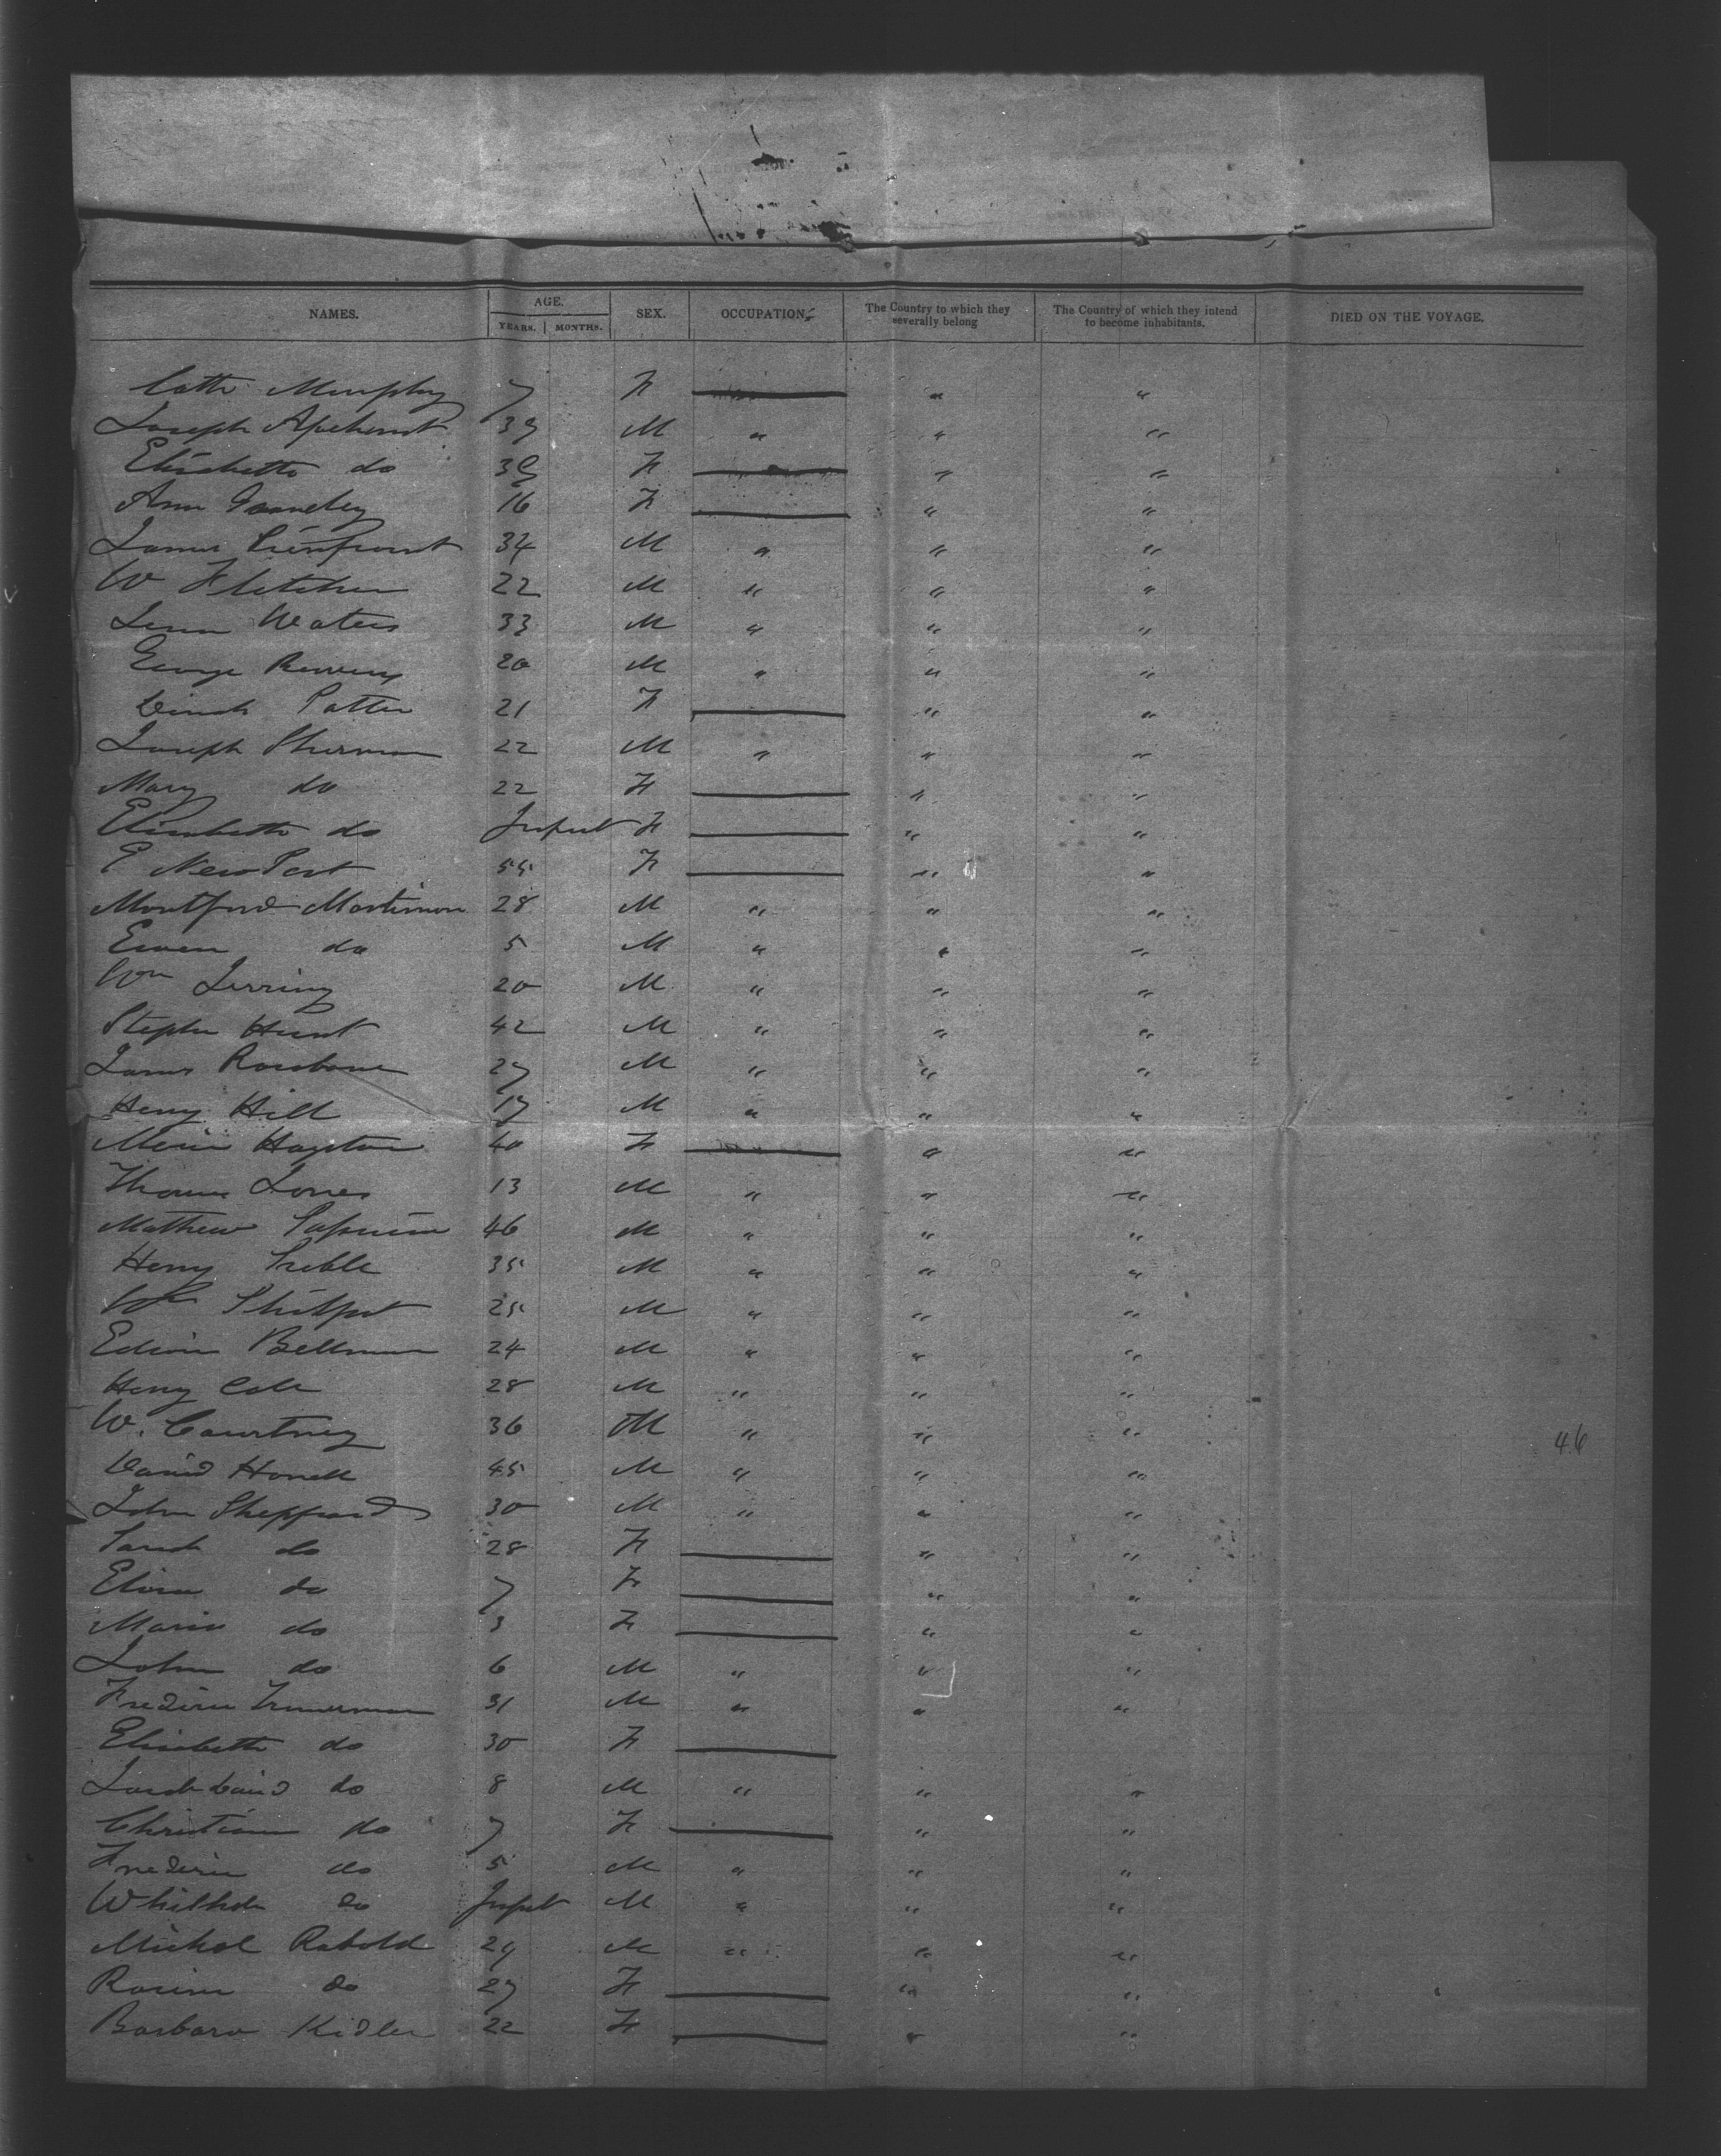 NAMES. AGE. YEARS. MONTHS. SEX. OCCUPATION. The Country to which they severally belong The Country of which they intend to become inhabitants. DIED ON THE VOYAGE.
Cath Murphy 7 F " "
Joseph 39 M " " "
Elisabeth do 39 F " "
Ann 16 F " "
James 34 M " " "
W Fletcher 22 M " " "
Waters 33 M " " "
George 20 M " " "
Dinah Potter 21 F " "
Joseph Sherman 22 M " " "
Mary do 22 F " "
Elisabeth do Infant F " "
E NewPort 55 F " "
Montford Mortimore 28 M " " "
do 5 M " " "
Wm Jerring 20 M " " "
Stephen Hunt 42 M " " "
James 27 M " " "
Henry Hill 17 M " " "
40 F " "
Thomas Jones 13 M " " "
Matthew 46 M " " "
Henry Preble 35 M " " "
Wm Philpot 25 M " " "
Edwin Bellman 24 M " " "
Henry Cole 28 M " " "
W. Courtney 36 M " " "
46
David Howell 45 M " " "
John Sheppard 30 M " " "
Sarah do 28 F " "
Eliza do 7 F " "
Maria do 3 F " "
John do 6 M " " "
Frederic 31 M " " "
Elisabeth do 30 F
do 8 M " " "
Christian do 7 F " "
Frederic do 5 M " " "
do Infant M " " "
Michel Rabold 29 M " " "
Rosina do 27 F " "
Barbara Kidler 22 F " "